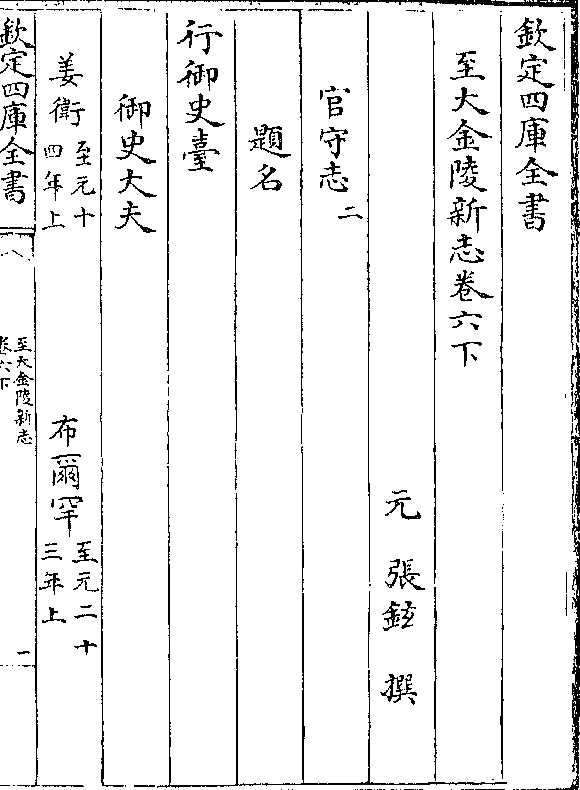 欽定四庫全書
至大金陵新志卷六下
元　張鉉　撰
官守志二
題名
行御史臺
御史大夫
姜衛至元十四年上　布爾罕至元二十三年上
欽定四庫全書
至大金陵新志
卷六下
一